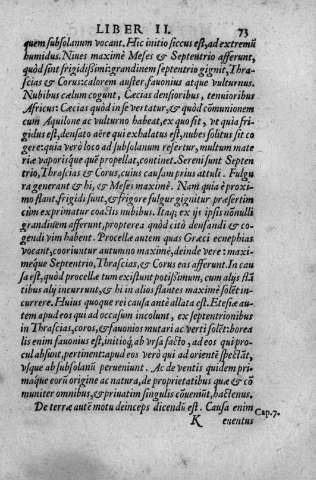 LIBER II. 73
quem subsolanum vocant. Hic initio siccus est, ad extremũ
humidus. Niues maximè Meses & Septentrio afferunt,
quòd sint frigidissimi: grandinem septentrio gignit, Thra-
scias & Corus: calorem auster, fauonius atque vulturnus.
Nubibus cælum cogunt, Cæcias densioribus, tenuioribus
Africus: Cæcias quòd in se vertatur, & quòd cõmunionem
cum Aquilone ac vulturno habeat, ex quo fit, vt quia fri-
gidus est, densato aëre qui exhalatus est, nubes solitus sit co
gere: quia verò loco ad subsolanum refertur, multum mate
riæ vaporisque quẽ propellat, continet. Sereni sunt Septen
trio, Thrascias & Corus, cuius causam prius attuli. Fulgu
ra generant & hi, & Meses maximè. Nam quia è proxi-
mo flant, frigidi sunt, & frigore fulgur gignitur præsertim
cùm exprimatur coactis nubibus. Itaq; ex ijs ipsis nõnulli
grandinẽm afferunt, propterea quòd citò densandi & co-
gendi vim habent. Procellæ autem quas Græci ecnephias
vocant, cooriuntur autumno maximè, deinde vere: maxi-
meq́ue Septentrio, Thrascias, & Corus eas afferunt. In cau
sa est, quòd procellæ tum existunt potissimum, cum alijs flã
tibus alij incurrunt, & hi in alios flantes maximè solẽt in-
currere. Huius quoque rei causa antè allata est. Etesiæ au-
tem apud eos qui ad occasum incolunt, ex septentrionibus
in Thrascias, coros, & fauonios mutari ac verti solẽt: borea
lis enim fauonius est, initioq́; ab vrsa facto, ad eos qui pro-
cul absunt, pertinent: apud eos verò qui ad oriente spectãt,
vsque ab subsolanũ perueniunt. Ac de ventis quidem pri-
maq́ue eorũ origine ac natura, de proprietatibus quæ & cõ
muniter omnibus, & priuatim singulis cõueniũt, hactenus.
De terræ autẽ motu deinceps dicendũ est. Causa enim
Cap.7.
K euentus